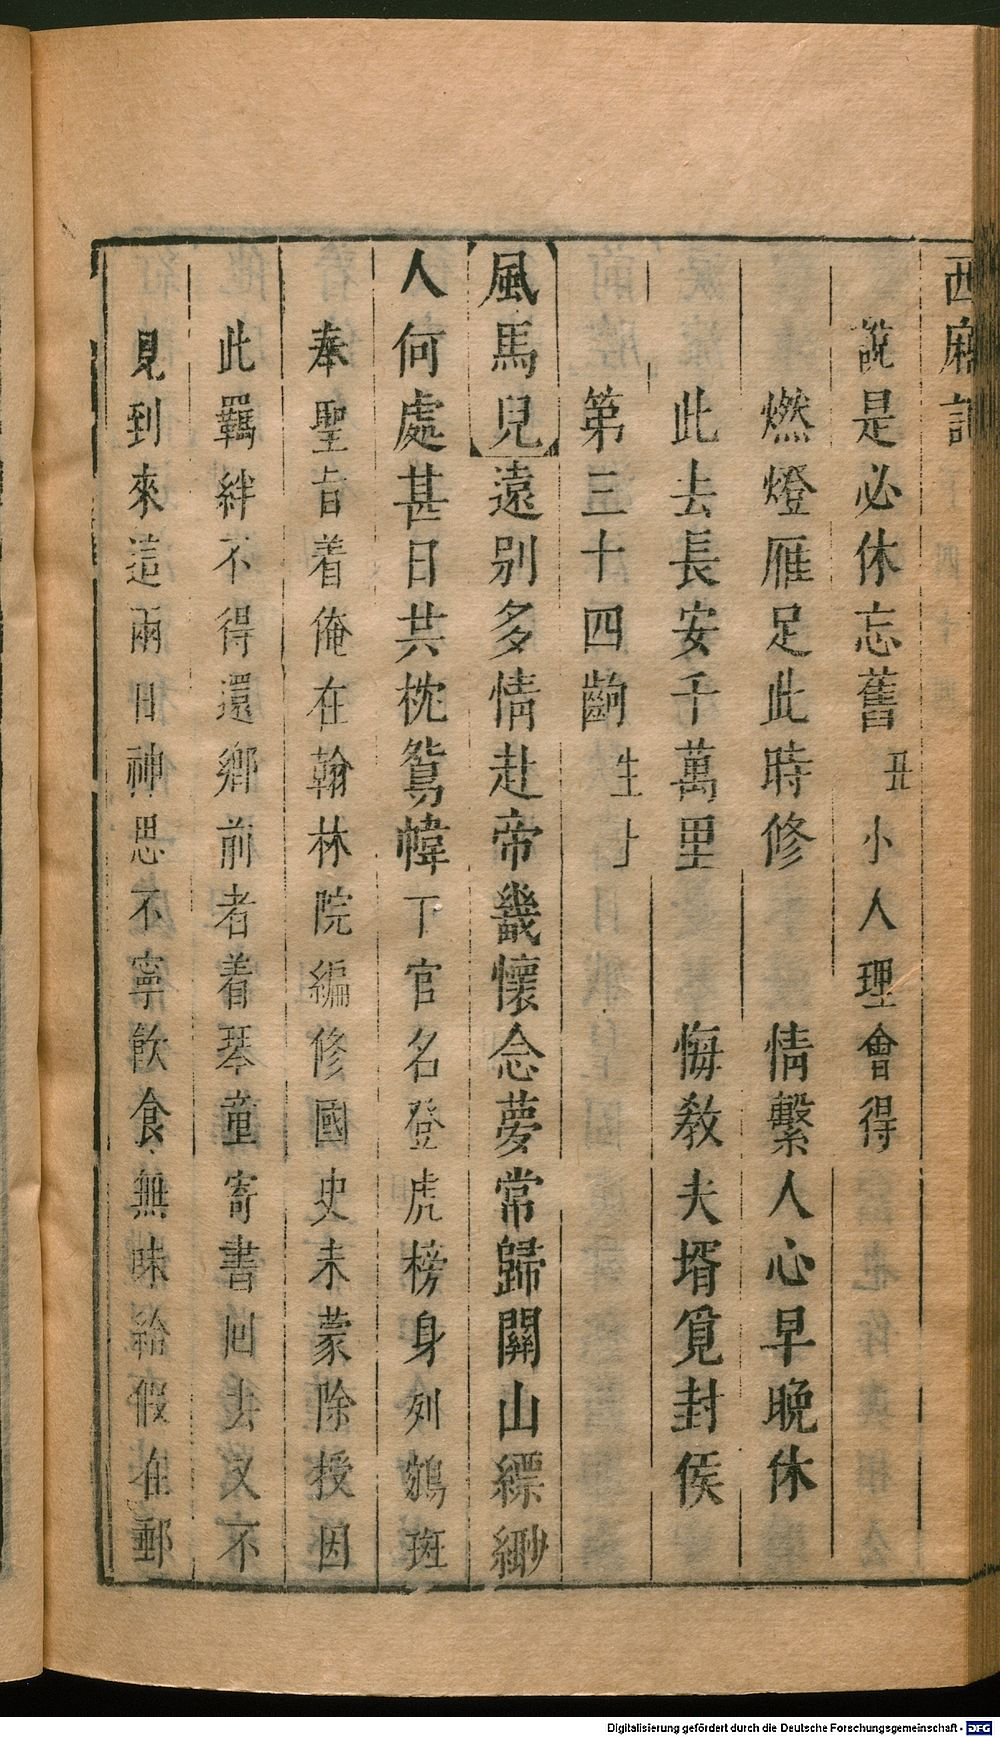 西廂記
說是必休忘舊 丑 小人理會得
燃燈雁足此時修 情繫人心早晚休
此去長安千萬里 悔教夫壻覓封侯
第三十四齣 生上
風馬兒 遠別多情赴帝畿懷念夢常歸關山縹緲
人何處甚日共枕鴛幃下官名登虎榜身列鵷班
奉聖旨着俺在翰林院編修國史未蒙除授因
此羈絆不得還鄉前者着琴童寄書回去又不
見到來這兩日神思不寧飲食無味給假在郵
Digitalisierung gefördert durch die Deutsche Forschungsgemeinschaft - DFG